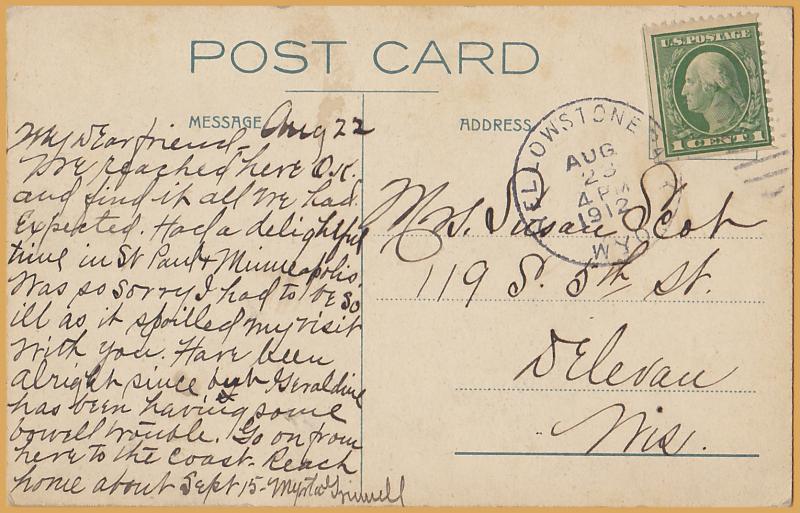 POST CARD
U.S. POSTAGE
1 CENT 1
YELLOWSTONE
AUG
23
4 PM
1912
WYO
MESSAGE
ADDRESS
Aug 22
My Dear friend-
We reached here O.K.
and find it all we had
Expected. Had a delightful
time in St Paul & Minneapolis.
Was so sorry I had to be so
ill as it spoiled my visit
with you. Have been
alright since but Geraldine
has been having some
bowell trouble. Go on from
here to the Coast- Reach
home about Sept 15-
Mrs. Susan Scot
119 S. 5th St.
Delevan
Wis.